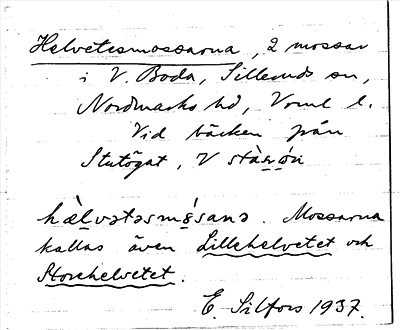 Helvetesmossarna, 2 mossar
i V. Boda, Silleruds sn,
Nordmarks hd, Vrml l.
Vid bäcken från
Stutögat, V
hæ̀lvətəsmósana. Mossarna
kallas även Lillehelvetet och
Storehelvetet.
E. Silfors 1937.